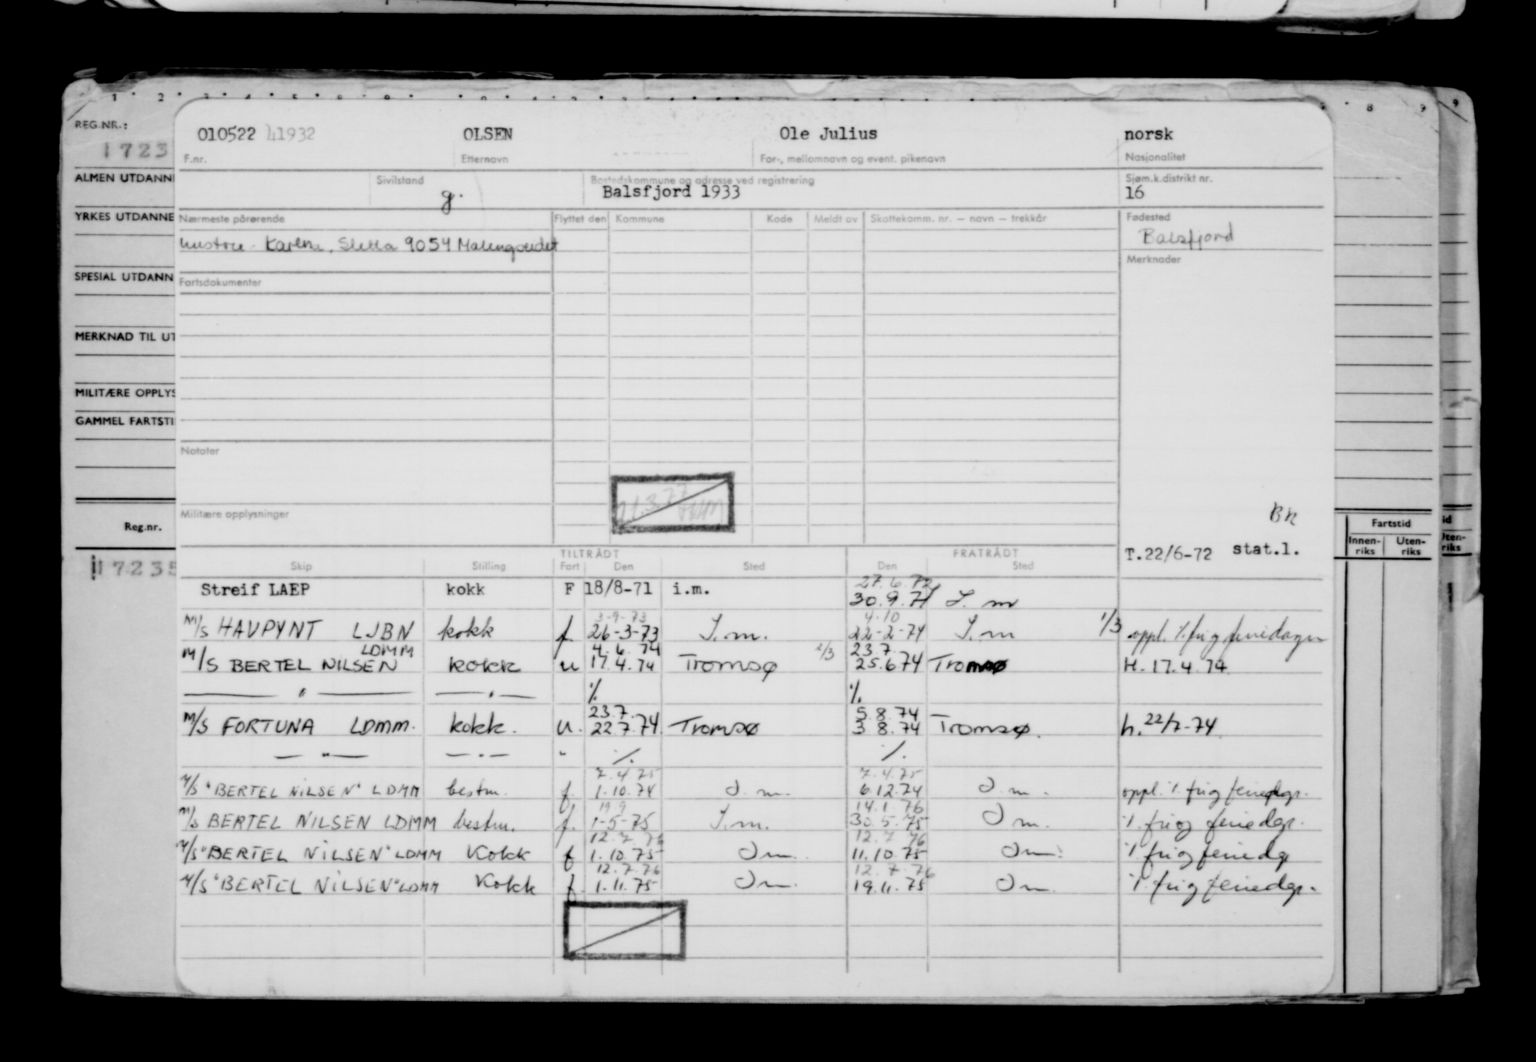 REG.NR.:
1723
ALMEN UTDANN
YRKES UTDANNE
SPESIAL UTDANN
MERKNAD TIL UT
MILITÆRE OPPLYS
GAMMEL FARTSTI
Reg.nr.
17235
010522 41932 OLSEN Ole Julius norsk
F.nr. Etternavn For-, mellomnavn og event. pikenavn Nasjonalitet
Sivilstand Bostedskommune og adresse ved registrering Sjøm.k.distrikt nr.
g. Balsfjord 1933 16
Nærmeste pårørende Flyttet den Kommune Kode Meldt av Skattekomm. nr. – navn – trekkår Fødested
hustru - Karen, Sletta 9054 Malangseidet Balsfjord
Merknader
Fartsdokumenter
Notater
Militære opplysninger
BN
TILTRÅDT FRATRÅDT T.22/6-72 stat.l.
Skip Stilling Fart Den Sted Den Sted
27.6.72
Streif LAEP kokk F 18/8-71 i.m. 30.9.71 I.m
3-9-73 4-10
M/S HAVPYNT LJBN kokk f 26-3-73 I.m. 22-2-74 I.m 1/3 oppl. % frig feriedager
LDMM 4.6.74 2/3 23.7
M/S BERTEL NILSEN kokk u 17.4.74 Tromsø 25.6.74 Tromsø H. 17.4.74
— " — — " — % %
23.7. 5.8.74
M/S FORTUNA LDMM. kokk. u. 22.7.74 Tromsø 3.8.74 Tromsø. h. 22/7-74
— " — — " — " % %
7.4.75 7.4.75
M/S "BERTEL NILSEN" LDMM bestm. f. 1.10.74 I.m. 6.12.74 I.m. oppl. % frig feriedgr.
19.9 14.1.76
M/S BERTEL NILSEN LDMM bestm. f. 1-5-75 I.m. 30.5.75 I m. % frig feriedgr.
12.7.76 12.7.76
M/S "BERTEL NILSEN" LDMM Kokk f 1.10.75 I m. 11.10.75 I m. % frig feriedg
12.7.76 12.7.76
M/S "BERTEL NILSEN" LDMM Kokk f. 1.11.75 I m. 19.11.75 I m. % frig feriedgr.
Fartstid
Innen-
riks
Uten-
riks